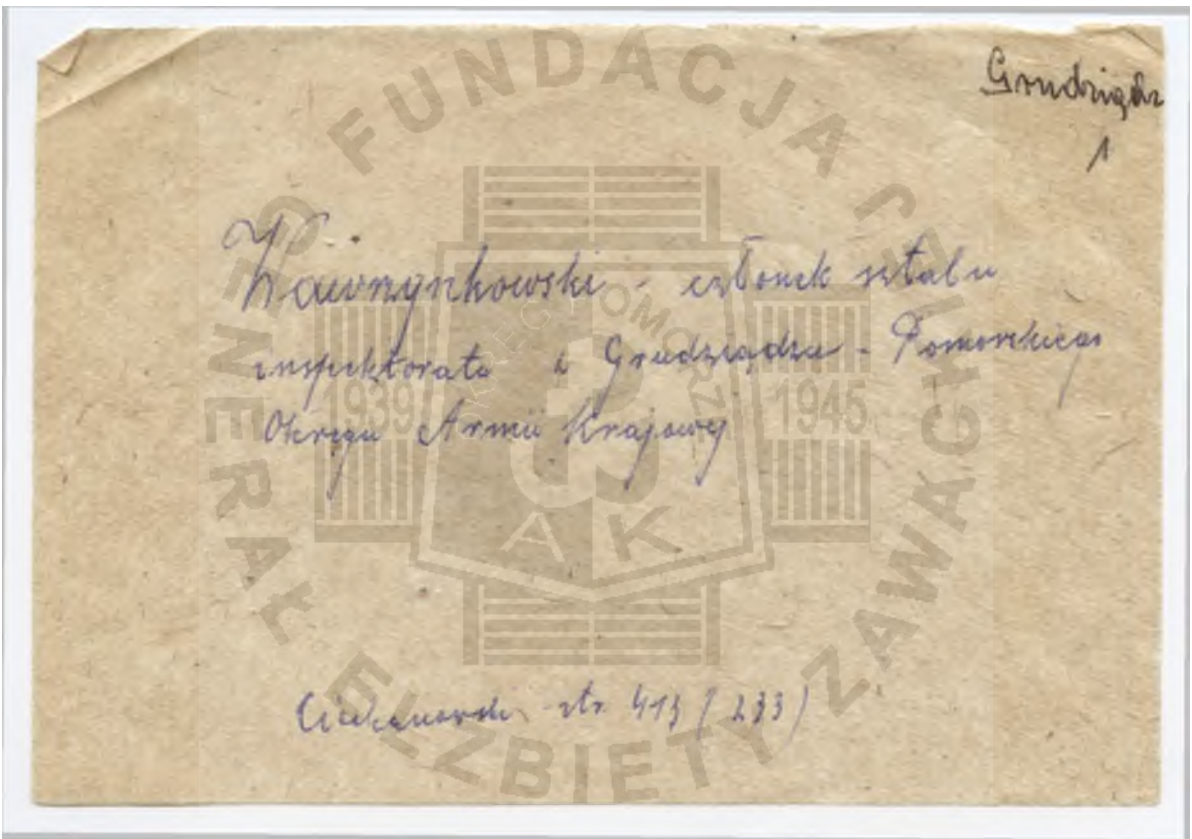 Grudziądz
1
Wawrzynkowski - członek sztabu
inspektoratu w Grudziądzu - Pomorskiego
Okręgu Armii Krajowej
Ciechanowski str. 413 (233)
FUNDACJA GENERAŁ ELŻBIETY ZAWACKIEJ
OKRĘG POMORZE
1939 1945
AK